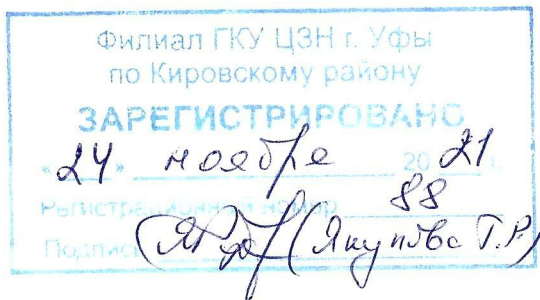 Филиал ГКУ ЦЗН г. Уфы
по Кировскому району
ЗАРЕГИСТРИРОВАНО
«24» ноября 2021 г.
Регистрационный номер 88
Подпись (Якупова Г.Р.)